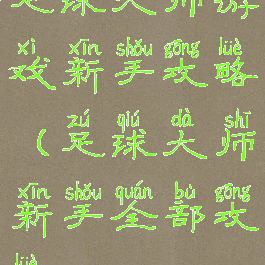 足球大师游
xì xīn shǒu gōng lüè
戏新手攻略
zú qiú dà shī
(足球大师
xīn shǒu quán bù gōng
新手全部攻
lüè